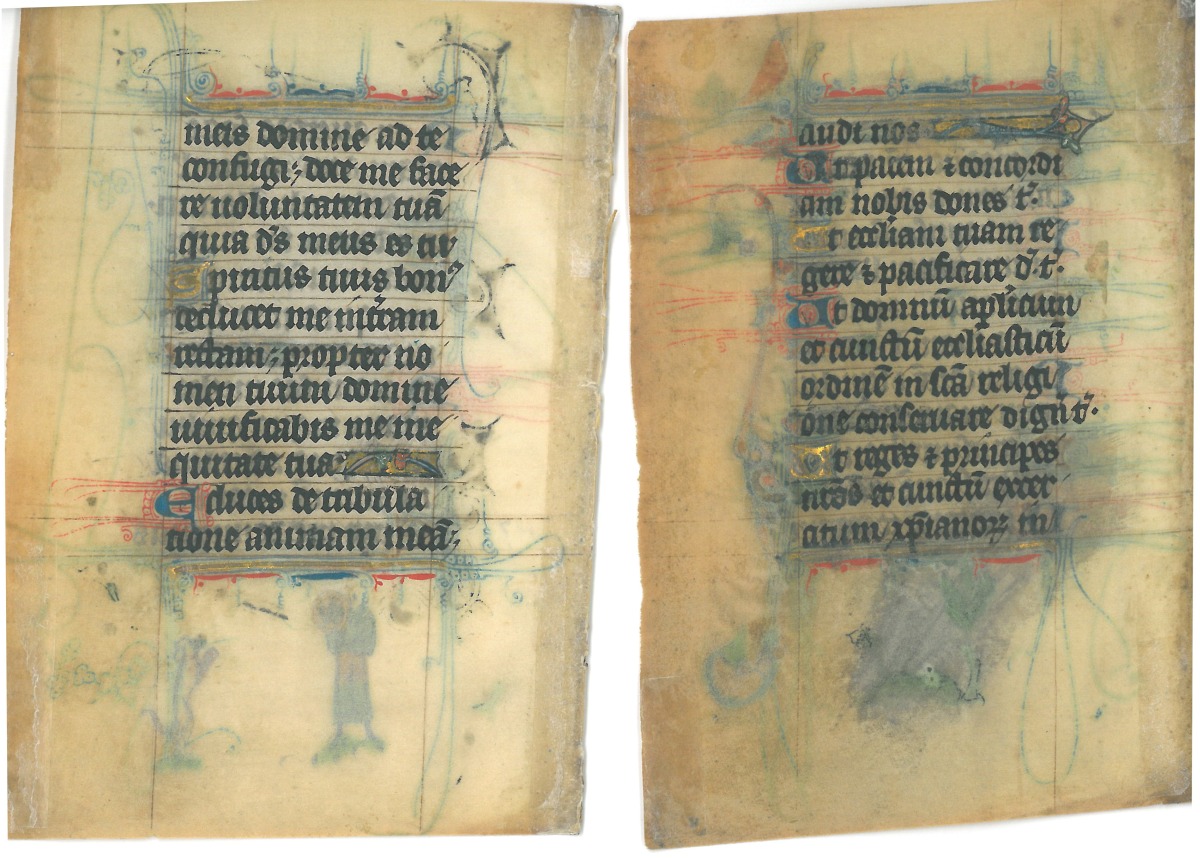 meis domine ad te
confugi; doce me face
re uoluntatem tuā
quia d̄s meus es tu
Spiritus tuus bonꝰ
deducet me in t̄ram
rectam; propter no
men tuum domine
uiuificabis me in e
quitate tua
Educes de tribula
tione animam meā;
audi nos
Ut pacem ⁊ concordi
am nobis dones t͛.
Ut eccl̄iam tuam re
gere ⁊ pacificare d̄.t͛.
Ut domnū apl̄icum
et cunctū eccl̄iasticū
ordinē in sc̄a religi
one conseruare dignī t͛.
Ut reges ⁊ principes
nr̄os et cunctū exer
citum xp̄ianoꝝ in